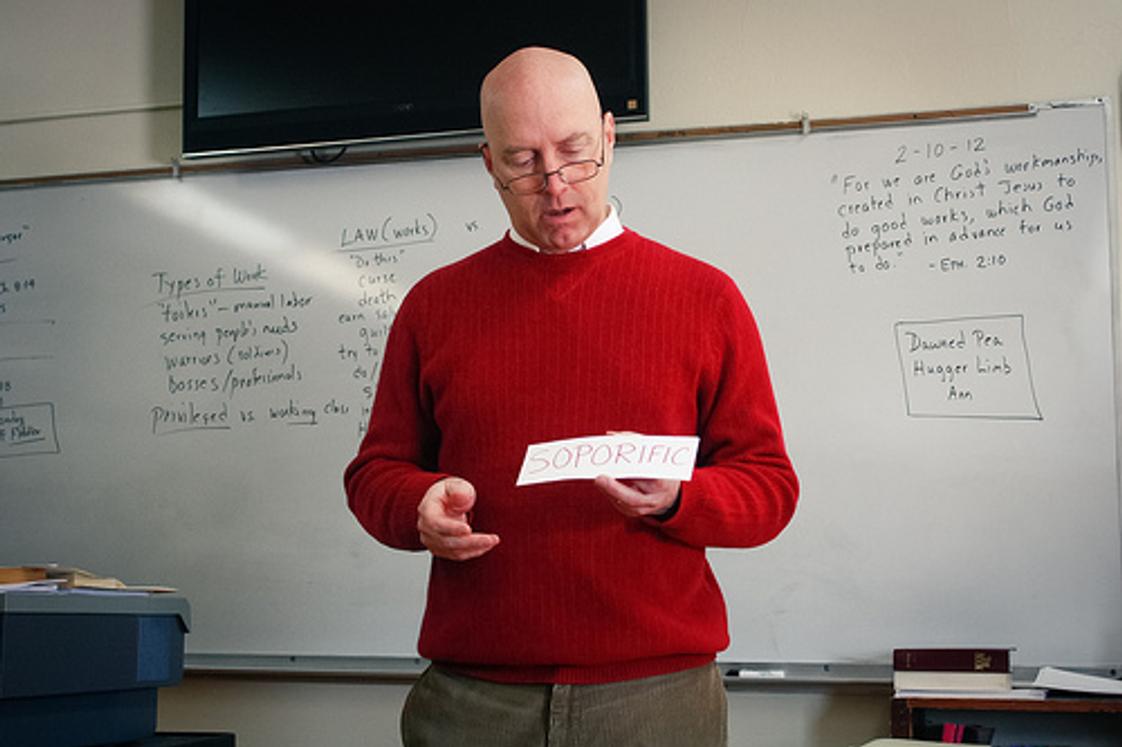 Types of Work
"toilers" – manual labor
serving people's needs
warriors (soldiers)
bosses/professionals
Privileged vs working class
LAW (works) vs
"Do this"
curse
death
earn
try to
do/
SOPORIFIC
2-10-12
"For we are God's workmanship,
created in Christ Jesus to
do good works, which God
prepared in advance for us
to do." -EPH. 2:10
Dawned Pea
Hugger Limb
Ann